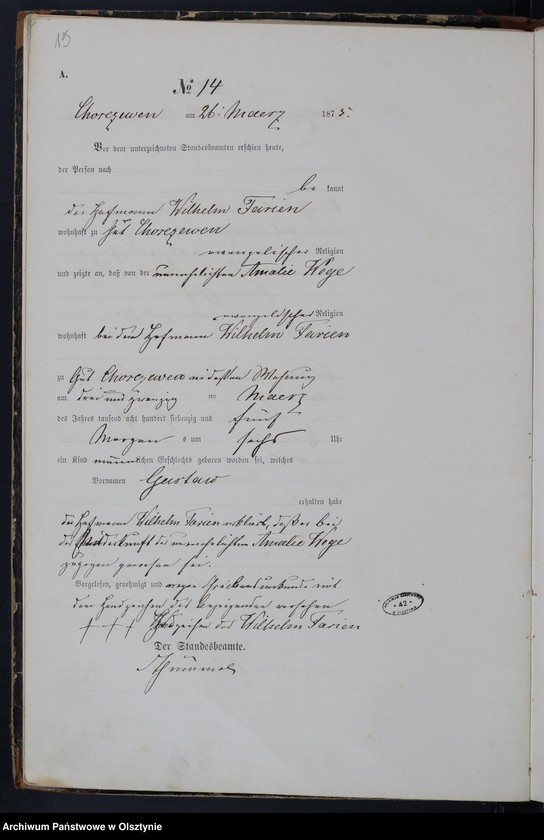 15
A.
№ 14
Chorezewen am 26. Maerz 1875.
Vor dem unterzeichneten Standesbeamten erschien heute,
der Person nach
be kannt
der Hofmann Wilhelm Farien
wohnhaft zu Gut Chorezewen
evangelischer Religion
und zeigte an, daß von der unverehelichten Amalie Hoge
evangelischer Religion
wohnhaft bei dem Hofmann Wilhelm Farien
zu Gut Chorezewen in dessen Wohnung
am drei und zwanzig ten Maerz
des Jahres tausend acht hundert siebenzig und fünf
Morgen s um sechs Uhr
ein Kind männlichen Geschlechts geboren worden sei, welches
Vornamen Gustaw
erhalten habe
der Hofmann Wilhelm Farien erklärt, daß er bei
der Niederkunft der unverehelichten Amalie Hoge
zugegen gewesen sei.
Vorgelesen, genehmigt und wegen Schreibensunkunde mit
dem Handzeichen des Anzeigenden versehen
+ + + Handzeichen des Wilhelm Farien
Der Standesbeamte.
42
Archiwum Państwowe w Olsztynie